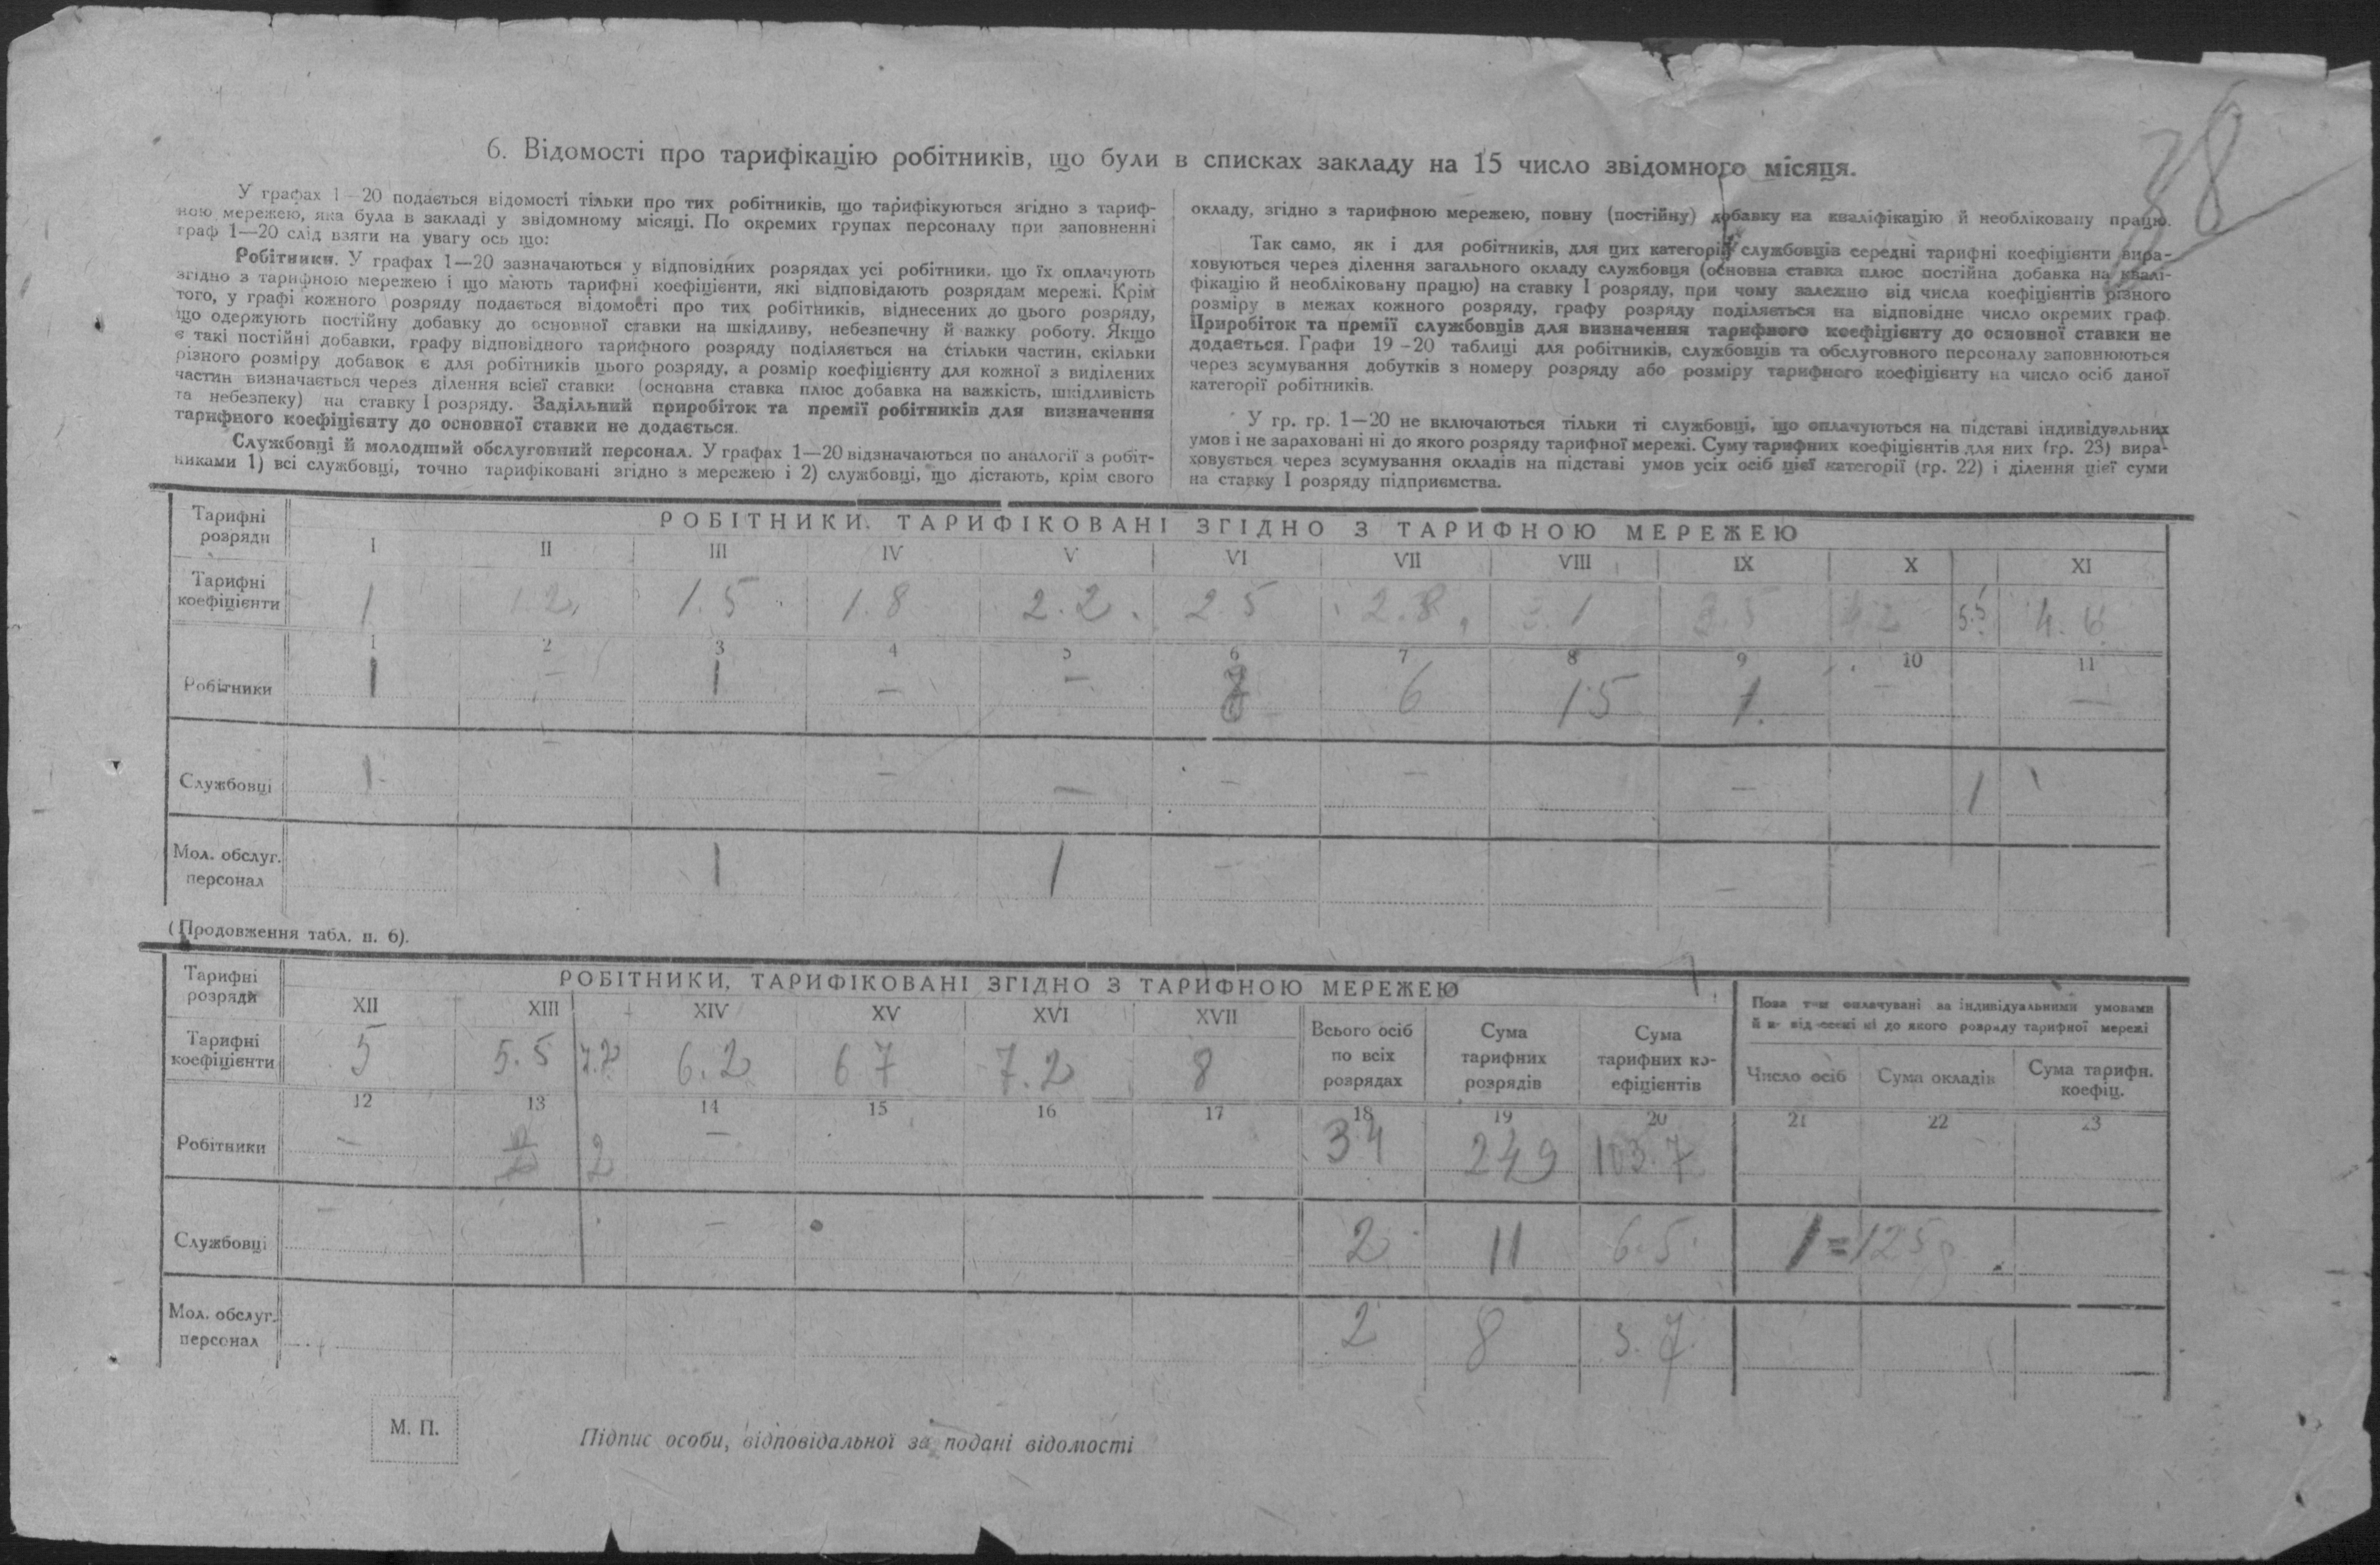 38
6. Відомості про тарифікацію робітників, що були в списках закладу на 15 число звідомного місяця.
У графах 1—20 подається відомості тільки про тих робітників, що тарифікуються згідно з тариф-
ною мережею, яка була в закладі у звідомному місяці. По окремих групах персоналу при заповненні
граф 1—20 слід взяти на увагу ось що:
Робітники. У графах 1—20 зазначаються у відповідних розрядах усі робітники, що їх оплачують
згідно з тарифною мережею і що мають тарифні коефіцієнти, які відповідають розрядам мережі. Крім
того, у графі кожного розряду подається відомості про тих робітників, віднесених до цього розряду,
що одержують постійну добавку до основної ставки на шкідливу, небезпечну й важку роботу. Якщо
є такі постійні добавки, графу відповідного тарифного розряду поділяється на стільки частин, скільки
різного розміру добавок є для робітників цього розряду, а розмір коефіцієнту для кожної з виділених
частин визначається через ділення всієї ставки (основна ставка плюс добавка на важкість, шкідливість
та небезпеку) на ставку I розряду. Задільний приробіток та премії робітників для визначення
тарифного коефіцієнту до основної ставки не додається.
Службовці й молодший обслуговний персонал. У графах 1—20 відзначаються по аналогії з робіт-
никами 1) всі службовці, точно тарифіковані згідно з мережею і 2) службовці, що дістають, крім свого
окладу, згідно з тарифною мережею, повну (постійну) добавку на кваліфікацію й необліковану працю.
Так само, як і для робітників, для цих категорій службовців середні тарифні коефіцієнти вира-
ховуються через ділення загального окладу службовця (основна ставка плюс постійна добавка на квалі-
фікацію й необліковану працю) на ставку I розряду, при чому залежно від числа коефіцієнтів різного
розміру в межах кожного розряду, графу розряду поділяється на відповідне число окремих граф.
Приробіток та премії службовців для визначення тарифного коефіцієнту до основної ставки не
додається. Графи 19–20 таблиці для робітників, службовців та обслуговного персоналу заповнюються
через зсумування добутків з номеру розряду або розміру тарифного коефіцієнту на число осіб даної
категорії робітників.
У гр. гр. 1—20 не включаються тільки ті службовці, що оплачуються на підставі індивідуальних
умов і не зараховані ні до якого розряду тарифної мережі. Суму тарифних коефіцієнтів для них (гр. 23) вира-
ховується через зсумування окладів на підставі умов усіх осіб цієї категорії (гр. 22) і ділення цієї суми
на ставку I розряду підприємства.
Тарифні розряди
РОБІТНИКИ, ТАРИФІКОВАНІ ЗГІДНО З ТАРИФНОЮ МЕРЕЖЕЮ
I II III IV V VI VII VIII IX X XI
Тарифні коефіцієнти 1 1.2 1.5 1.8 2.2 2.5 2.8 3.1 3.5 4.2 5.5 4.6
1 2 3 4 5 6 7 8 9 10 11
Робітники 1 — 1 — — 6 15 1. — —
Службовці 1 — — — — — — 1
Мол. обслуг. персонал 1 1 — —
(Продовження табл. п. 6).
Тарифні розряди
РОБІТНИКИ, ТАРИФІКОВАНІ ЗГІДНО З ТАРИФНОЮ МЕРЕЖЕЮ
XII XIII XIV XV XVI XVII
Всього осіб по всіх розрядах
Сума тарифних розрядів
Сума тарифних коефіцієнтів
Поза тим оплачувані за індивідуальними умовами
й не віднесені ні до якого розряду тарифної мережі
Число осіб
Сума окладів
Сума тарифн. коефіц.
Тарифні коефіцієнти 5 5.5 7.7 6.2 6.7 7.2 8
12 13 14 15 16 17 18 19 20 21 22 23
Робітники — 2 2 — 34 249 103.7
Службовці — — 2 11 6.5 1=125
Мол. обслуг. персонал 2 8 3.7
М. П.
Підпис особи, відповідальної за подані відомості